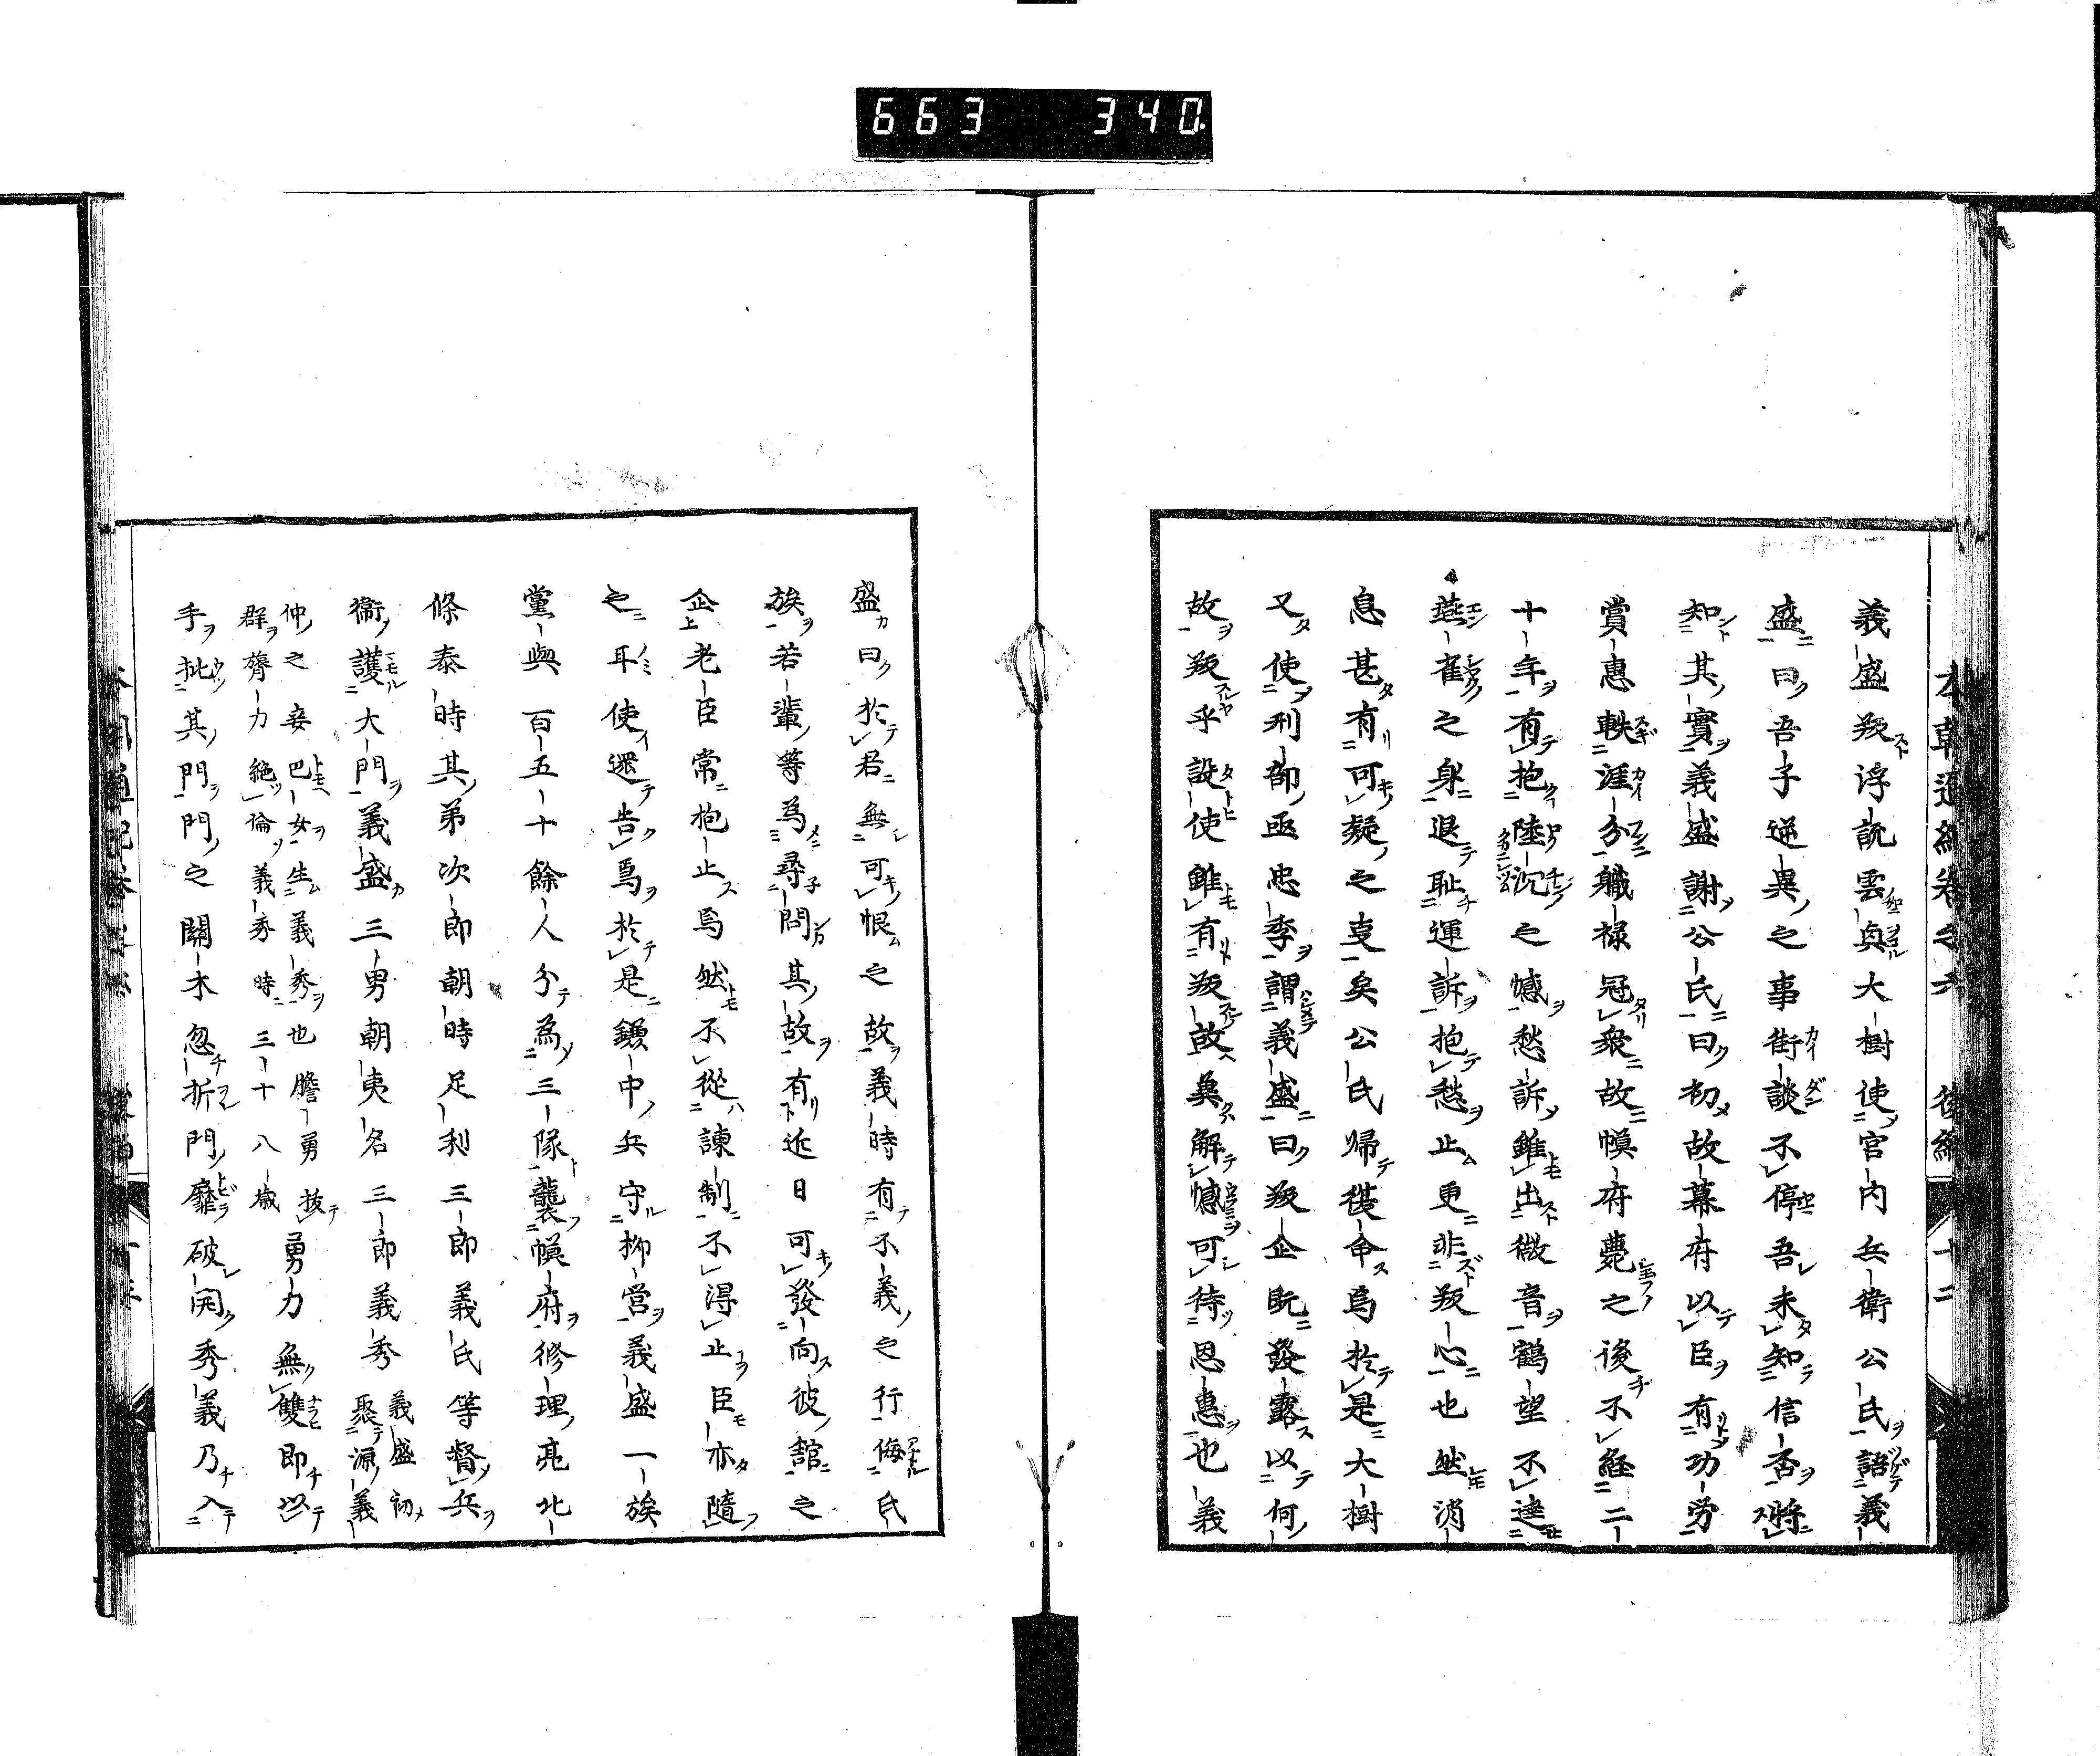 663 340
本朝通紀卷之六 後編 十二
義盛叛誶訛雲臾大樹使官内兵衛公氏語義
盛曰吾子逆異之事街談不停吾未知信否將
知其實義盛謝公氏曰初故幕府以臣有功労
賞惠軼涯分職禄冠衆故幙府薨之後不經二
十年有抱陸沉之憾愁訴雖出微音鶴望不達
燕雀之身退耻運訴抱愁止更非叛心也然消
息甚有可疑之支矣公氏帰復命焉於是大樹
又使刑部亟忠季謂義盛曰叛企既發露以何
故叛乎設使雖有叛故奠解憾可待恩惠也義
盛曰於君無可恨之故義時有不義之行侮氏
族若輩等為尋問其故有近日可發向彼舘之
企老臣常抱止焉然不從諫制不得止臣亦隨
之耳使還告焉於是鎌中兵守柳営義盛一族
黨與百五十餘人分為三隊襲幙府修理亮北
條泰時其弟次郎朝時足利三郎義氏等督兵
衞護大門義盛三男朝夷名三郎義秀義盛初聚源義
仲之妾巴女生義秀也膽勇拔群膂力絶倫義秀時三十八歳勇力無雙即以
手批其門門之關木忽折門靡破開秀義乃入